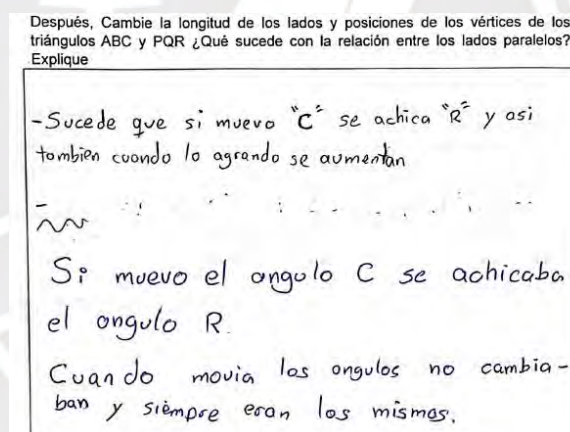 Después, Cambie la longitud de los lados y posiciones de los vértices de los
triángulos ABC y PQR ¿Qué sucede con la relación entre los lados paralelos?
Explique
-Sucede que si muevo "C" se achica "R" y asi
tombien cuondo lo agrando se aumentan
Si muevo el ongulo C se achicaba
el ongulo R.
Cuando movia los ongulos no cambia-
ban y siempre eran los mismos.